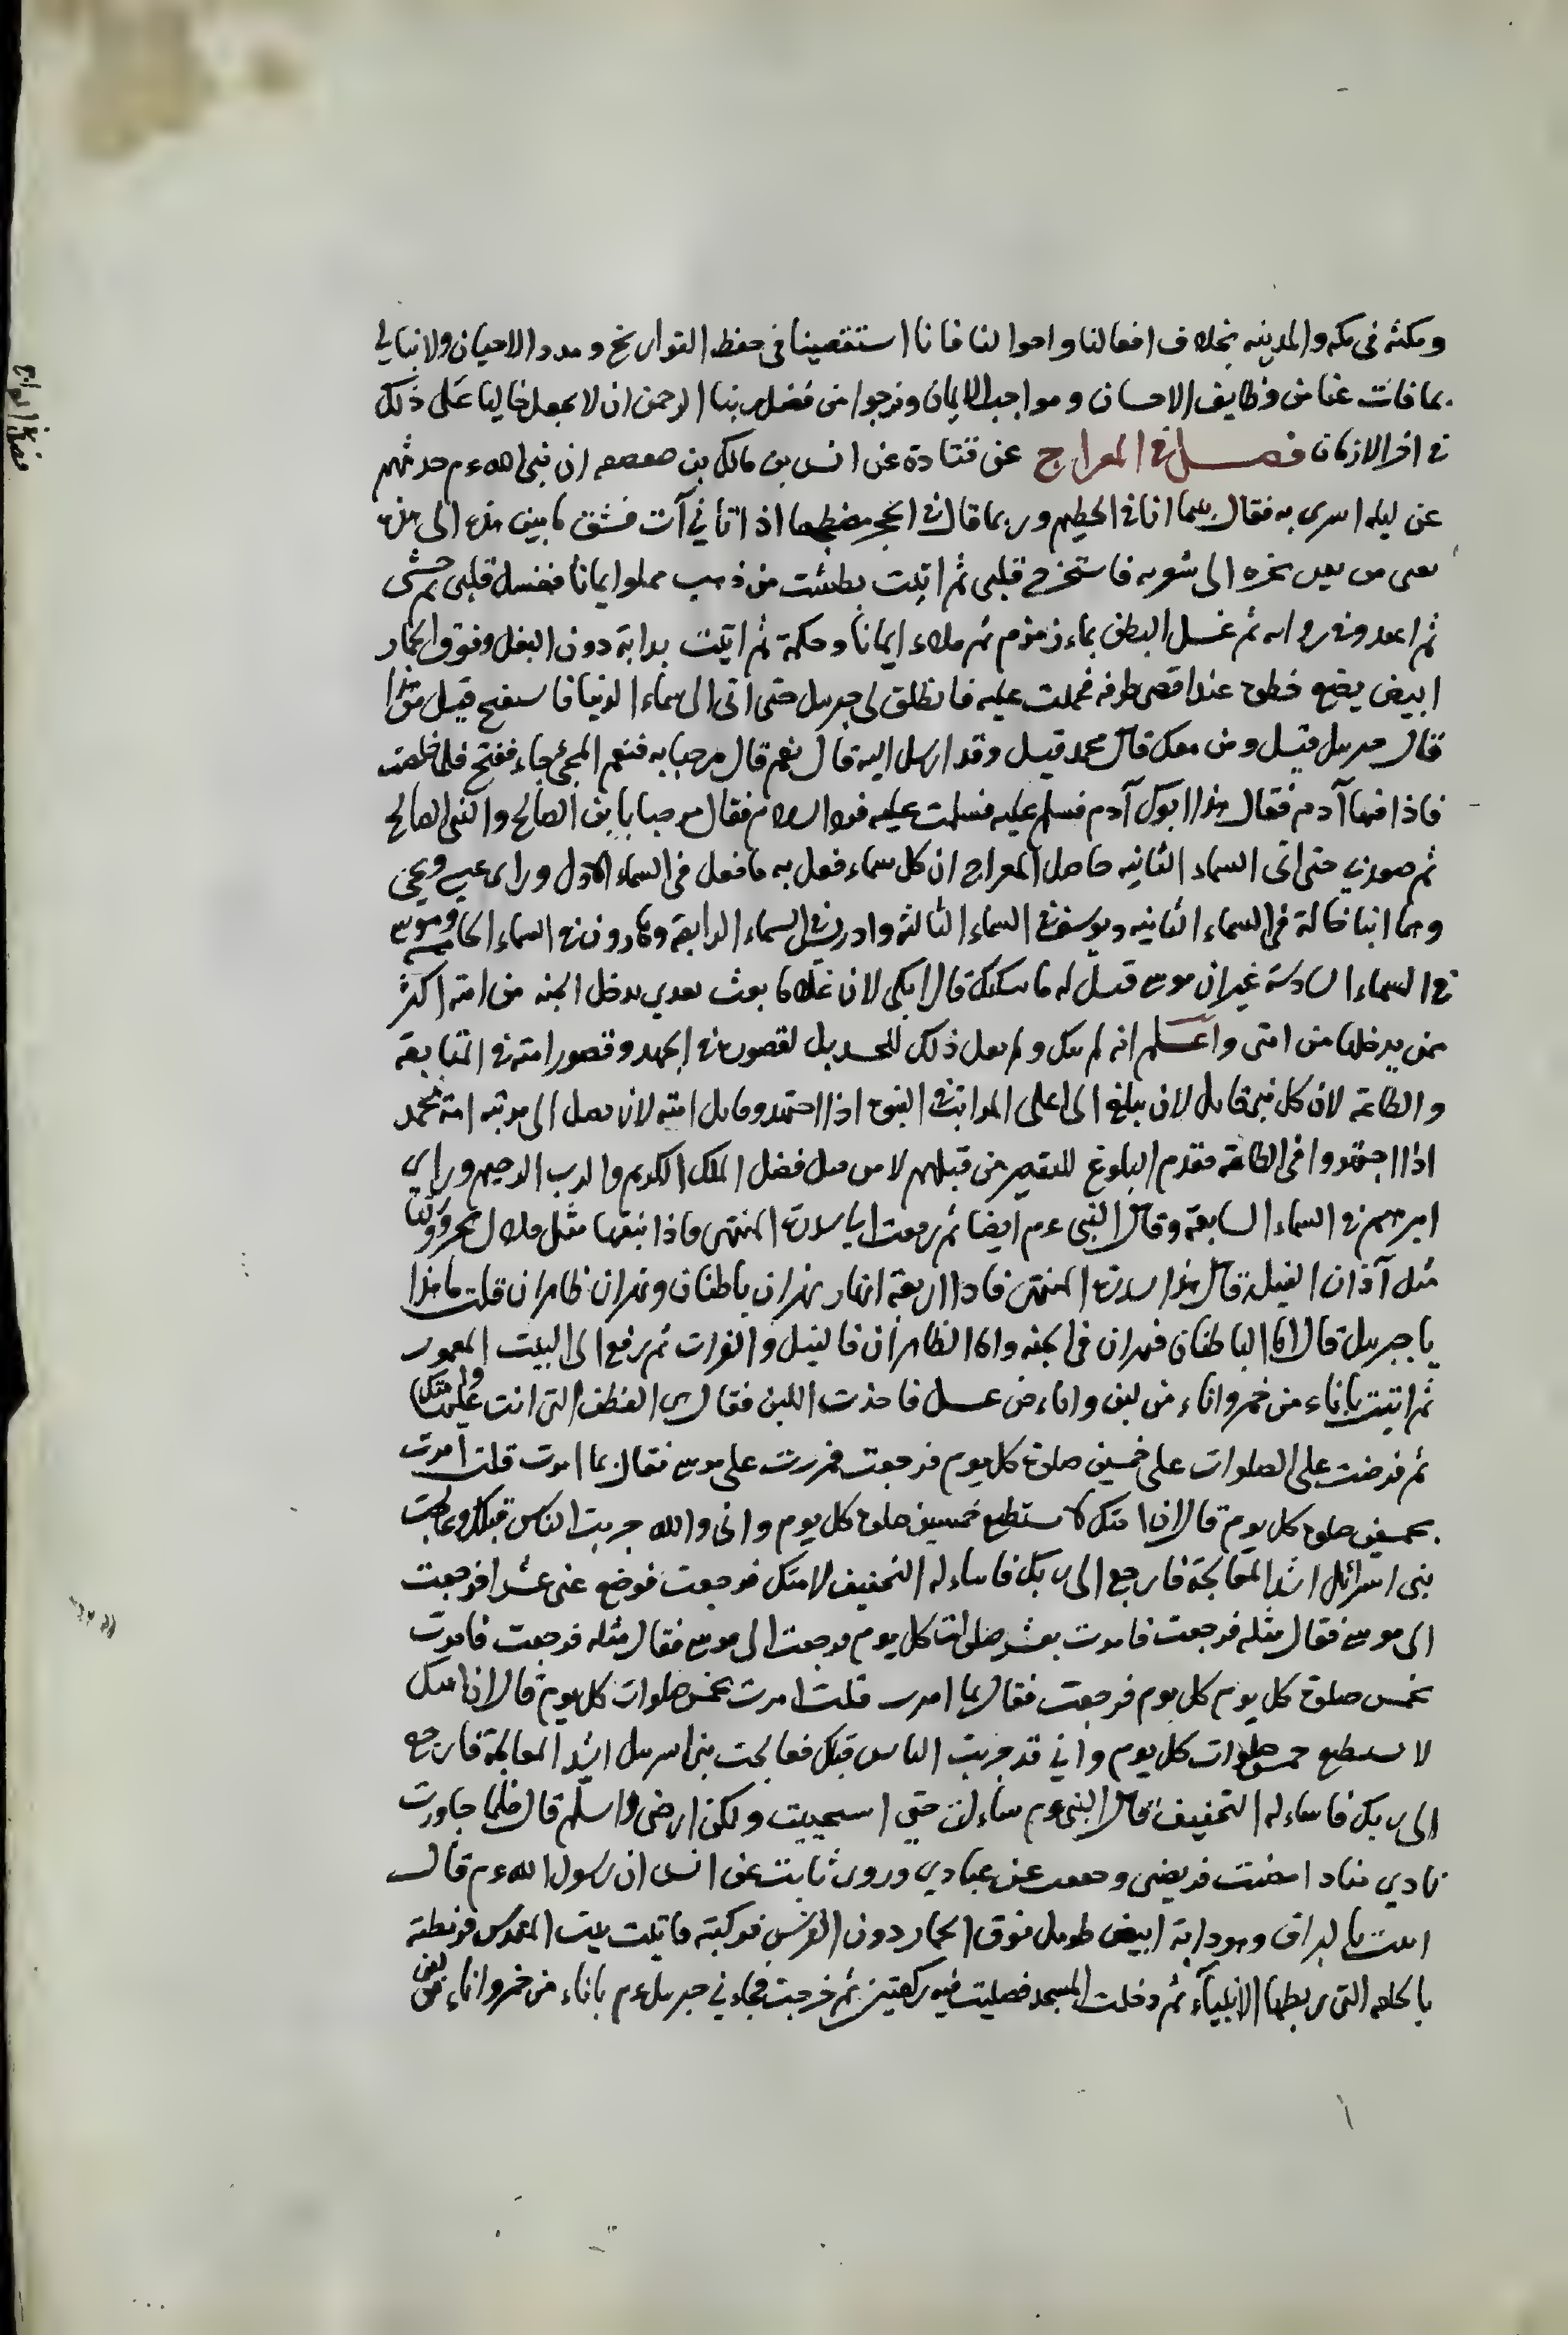 ومكثه فى مكه والمدينه بخلاف افعالنا واحوالنا فانا استقصينا فى حفظ التواريخ ومدد الاحيان ولا نبالى
بما فات عنا من وظايف الاحسان ومواجب الايمان ونرجوا من فضل ربنا الرحمن ان لا يجعل خاليا على ذلك
فى اخر الازمان فصل فى المعراج عن قتادة عن انس بن مالك بن صعصعه ان نبى الله ءم حدثهم
عن ليله اسرى به فقال بينما انا فى الحطيم وربما قال فى الحجر مضطجعا اذ اتانى آت فشق ما بين هذه الى هذه
يعنى من بين نحره الى شعرته فاستخرج قلبى ثم اتيت بطشت من ذهب مملوا ايمانا فغسل قلبى ثم حشى
ثم اعيد وفى رواىه ثم غسل البطن بماء زمزم ثم ملاء ايمانا وحكمة ثم اتيت بدابة دون البغل وفوق الحمار
ابيض يضع خطوه عند اقصى طرفه فحملت عليه فانطلق لى جبريل حتى اتى الى سماء الدنيا فاستفتح قيل من هذا
قال جبريل قيل ومن معك قال محمد قيل وقد ارسل اليه قال نعم قال مرحبا به فنعم المجئ جاء ففتح فلما خلصت
فاذا فيها آدم فقال هذا ابوك آدم فسلم عليه فسلمت عليه فرد السلام فقال مرحبا بابن الصالح والنبى الصالح
ثم صعد بى حتى اتى السماء الثانيه حاصل المعراج ان كل سماء فعل به ما فعل فى السماء الاول وراى عيسى ويحيى
وهما ابنا خالة فى السماء الثانيه ويوسف فى السماء الثالثه وادريس فى السماء الرابعة وهارون فى السماء الخامسه وموسى
فى السماء السادسة غير ان موسى قيل له ما يبكيك قال ابكى لان غلاما بعث بعدي يدخل الجنه من امته اكثر
ممن يدخلها من امتى واعلم انه لم يبك ولم يقل ذلك للحسد بل لقصوره فى الجهد وقصور امته فى المتابعة
والطاعة لان كل نبى قابل لان يبلغ الى اعلى المراتب فى النبوة اذا اجتهد وقابل امته لان يصل الى مرتبه امة محمد
اذا اجتهدوا فى الطاعة فعدم البلوغ للتقصير من قبلهم لا من قبل فضل الملك الكريم والرب الرحيم وراى
ابرهيم فى السماء السابعة وقال النبى ءم ايضا ثم رفعت الى سدرة المنتهى فاذا نبقها مثل قلال هجر وورقها
مثل آذان الفيلة قال هذا سدرة المنتهى فاذا اربعة انهار نهران باطنان ونهران ظاهران قلت ما هذا
يا جبريل قال اما الباطنان فنهران فى الجنه واما الظاهران فالنيل والفرات ثم رفع الى البيت المعمور
ثم اتيت باناء من خمر واناء من لبن واناء من عسل فاخذت اللبن فقال هى الفطرة التى انت عليها وامتك
ثم فرضت على الصلوات على خمسين صلوة كل يوم فرجعت فمررت على موسى فقال بما امرت قلت امرت
بخمسين صلوة كل يوم قال ان امتك لا تستطيع خمسين صلوة كل يوم وانى والله جربت الناس قبلك وعالجت
بنى اسرائل اشد المعالجة فارجع الى ربك فاساءله التخفيف لامتك فرجعت فوضع عنى عشرا فرجعت
الى موسى فقال مثله فرجعت فامرت بعشر صلوات كل يوم فرجعت الى موسى فقال مثله فرجعت فامرت
بخمس صلوة كل يوم كل يوم فرجعت فقال بما امرت قلت امرت بخمس صلوات كل يوم قال ان امتك
لا تستطيع خمس صلوات كل يوم وانى قد جربت الناس قبلك فعالجت بنى اسريل اشد المعالجة فارجع
الى ربك فاساءله التخفيف قال النبى ءم ساءلت حتى استحييت ولكن ارضى واسلم قال فلما جاوزت
نادى مناد امضيت فريضتى وخففت عن عبادي وروى ثابت عن انس ان رسول الله ءم قال
اتيت بالبراق وهو دابة ابيض طويل فوق الحمار دون الفرس فركبته فاتيت بيت المقدس فربطته
بالحلقه التى يربطها الانبياء ثم دخلت المسجد فصليت فيه ركعتين ثم خرجت فجاءنى جبريل ءم باناء من خمر واناء من لبن